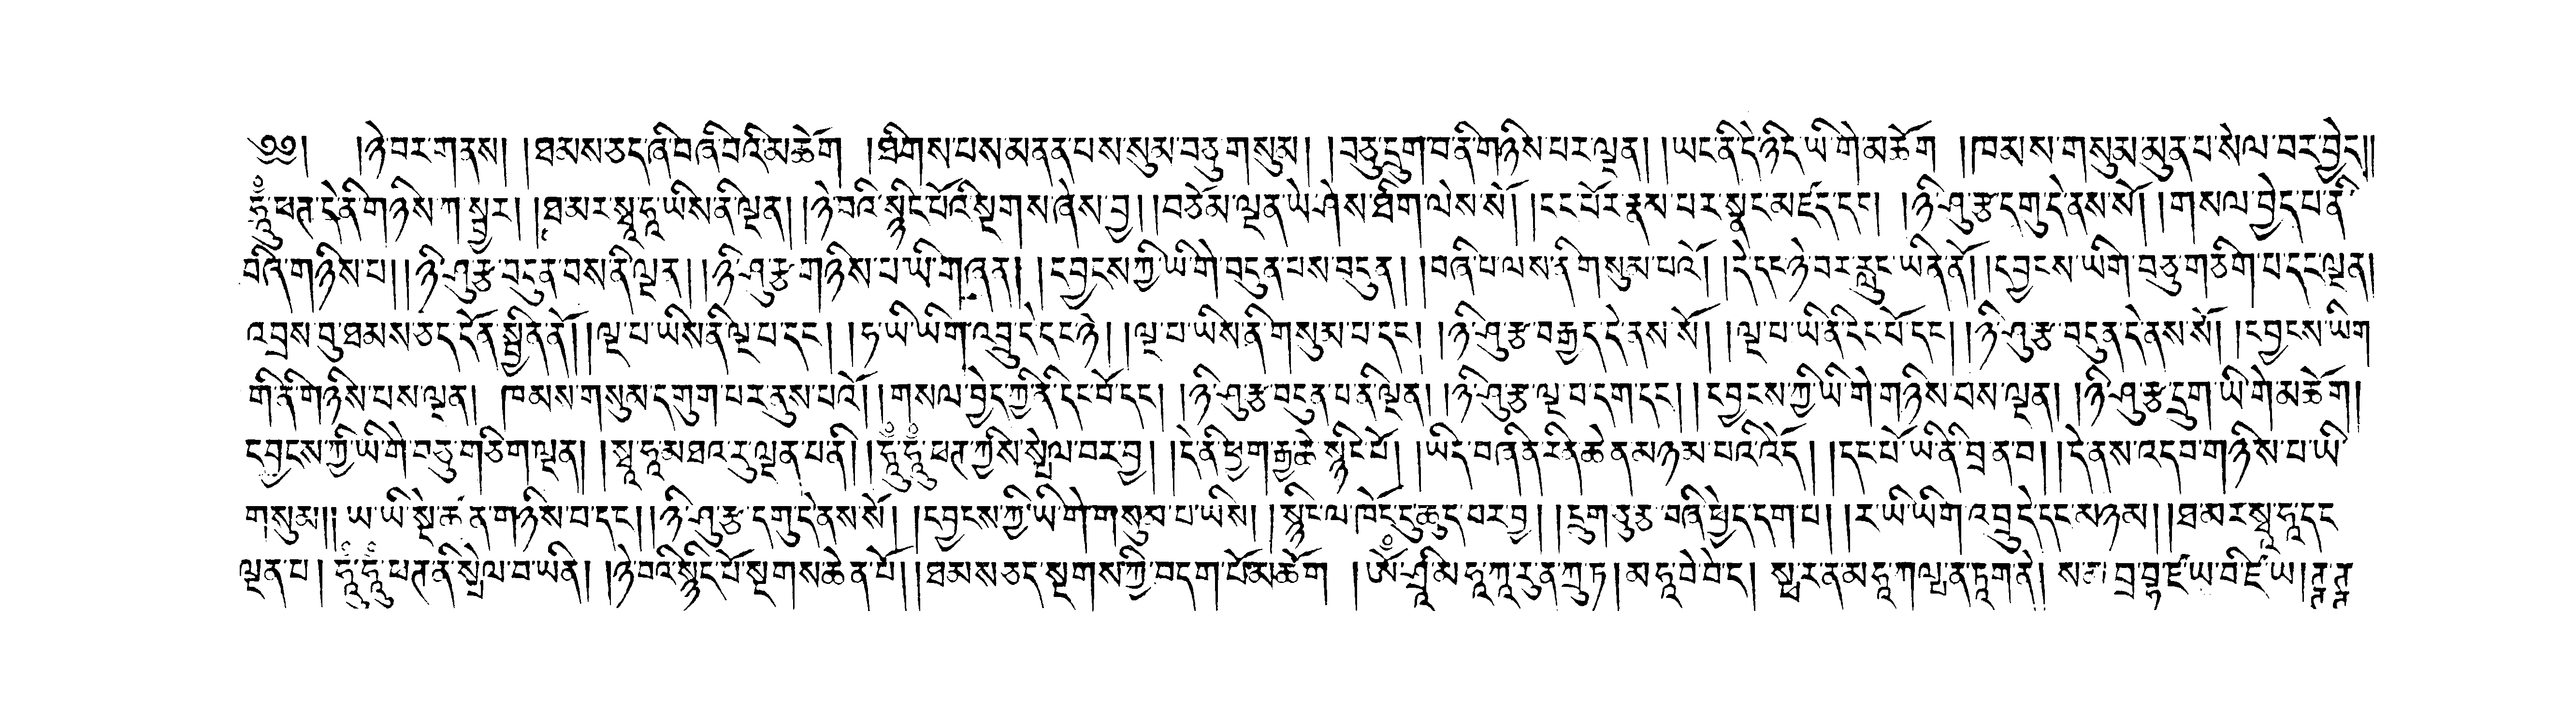 ༄༅། །ཉེ་བར་གནས། །ཐམས་ཅད་ཞི་བ་ཞི་བའི་མཆོག །ཐིགས་པས་མནན་པས་སུམ་བཅུ་གསུམ། །བཅུ་དྲུག་བ་ནི་གཉིས་པར་ལྡན། །ཡང་ནི་དེ་ཉིད་ཡི་གེ་མཆོག །ཁམས་གསུམ་མུན་པ་སེལ་བར་བྱེད།།
ཧཱུྃ་ཕཊ་དེ་ནི་གཉིས་ཀ་སྦྱར། །ཐ་མར་སྭཱ་ཧཱ་ཡིས་ནི་ལྡན། །ཉེ་བའི་སྙིང་པོའི་སྔགས་ཞེས་བྱ། །བཅོམ་ལྡན་ཡེ་ཤེས་ཐིག་ལེས་སོ། །དང་པོར་རྣམ་པར་སྣང་མཛད་དང། །ཉི་ཤུ་རྩ་དགུ་དེ་ནས་སོ། །གསལ་བྱེད་པ་ནི་
བཞི་གཉིས་པ། །ཉི་ཤུ་རྩ་བདུན་བས་ནི་ལྡན། །ཉི་ཤུ་རྩ་གཉིས་པ་ཡི་གེ་ཞོན། །དབྱངས་ཀྱི་ཡི་གེ་བདུན་པས་བདུན། །བཞི་པ་ལས་ནི་གསུམ་པའོ། །དེ་དང་ཉེ་བར་རླུང་ཡིན་ནོ། །དབྱངས་ཡིག་བཅུ་གཅིག་པ་དང་ལྡན།
འབྲས་བུ་ཐམས་ཅད་དོན་སྦྱིན་ནོ། །ལྔ་པ་ཡིས་ནི་ལྔ་པ་དང། །ཧ་ཡི་ཡིག་འབྲུ་དེ་དང་ཉེ། །ལྔ་པ་ཡིས་ནི་གསུམ་པ་དང། །ཉི་ཤུ་རྩ་བརྒྱད་དེ་ནས་སོ། །ལྔ་པ་ཡི་ནི་དང་པོ་དང། །ཉི་ཤུ་རྩ་བདུན་དེ་ནས་སོ། །དབྱངས་ཡིག
གི་ནི་གཉིས་པས་ལྡན། ཁམས་གསུམ་དགུག་པར་ནུས་པའོ། །གསལ་བྱེད་ཀྱི་ནི་དང་པོ་དང། །ཉི་ཤུ་རྩ་བདུན་པ་ནི་ལྡན། །ཉི་ཤུ་རྩ་ལྔ་བ་དག་དང། །དབྱངས་ཀྱི་ཡི་གེ་གཉིས་པས་ལྡན། །ཉི་ཤུ་རྩ་དྲུག་ཡི་གེ་མཆོག།
དབྱངས་ཀྱི་ཡི་གེ་བཅུ་གཅིག་ལྡན། །སྭཱ་ཧཱ་མཐའ་རུ་ལྡན་པ་ནི། །ཧཱུྃ་ཧཱུྃ་ཕཊ་ཀྱིས་སྤེལ་བར་བྱ། །དེ་ནི་ཕྱག་རྒྱ་ཆེ་སྙིང་པོ། །ཡིད་བཞིན་རིན་ཆེན་མཉམ་པའི་འོད། །དང་པོ་ཡི་ནི་བྲི་ན་བ། །དེ་ནས་འདབ་གཉིས་པ་ཡི
གསུམ།། ཡ་ཡི་སྡེ་ཚན་གཉིས་པ་དང། །ཉི་ཤུ་རྩ་དགུ་དེ་ནས་སོ། །དབྱངས་ཀྱི་ཡི་གེ་གསུམ་པ་ཡིས། །སྙིང་ལ་ཁོང་དུ་ཆུད་བར་བྱ། །དྲུག་ཅུ་རྩ་བཞི་ཕྱེད་དག་པ། །ར་ཡི་ཡིག་འབྲུ་དེ་དང་མཉམ། །ཐ་མར་སྭཱ་ཧཱ་དང
ལྡན་པ། ཧཱུྃ་ཧཱུྃ་ཕཊ་ནི་སྤེལ་བ་ཡིན། །ཉེ་བའི་སྙིང་པོ་སྔགས་ཆེན་པོ། །ཐམས་ཅད་སྔགས་ཀྱི་བདག་པོ་མཆོག །ཨོཾ་ཤྲཱི་མ་ཧཱ་ཀཱ་རུན་ཀྲུ་ཏ།